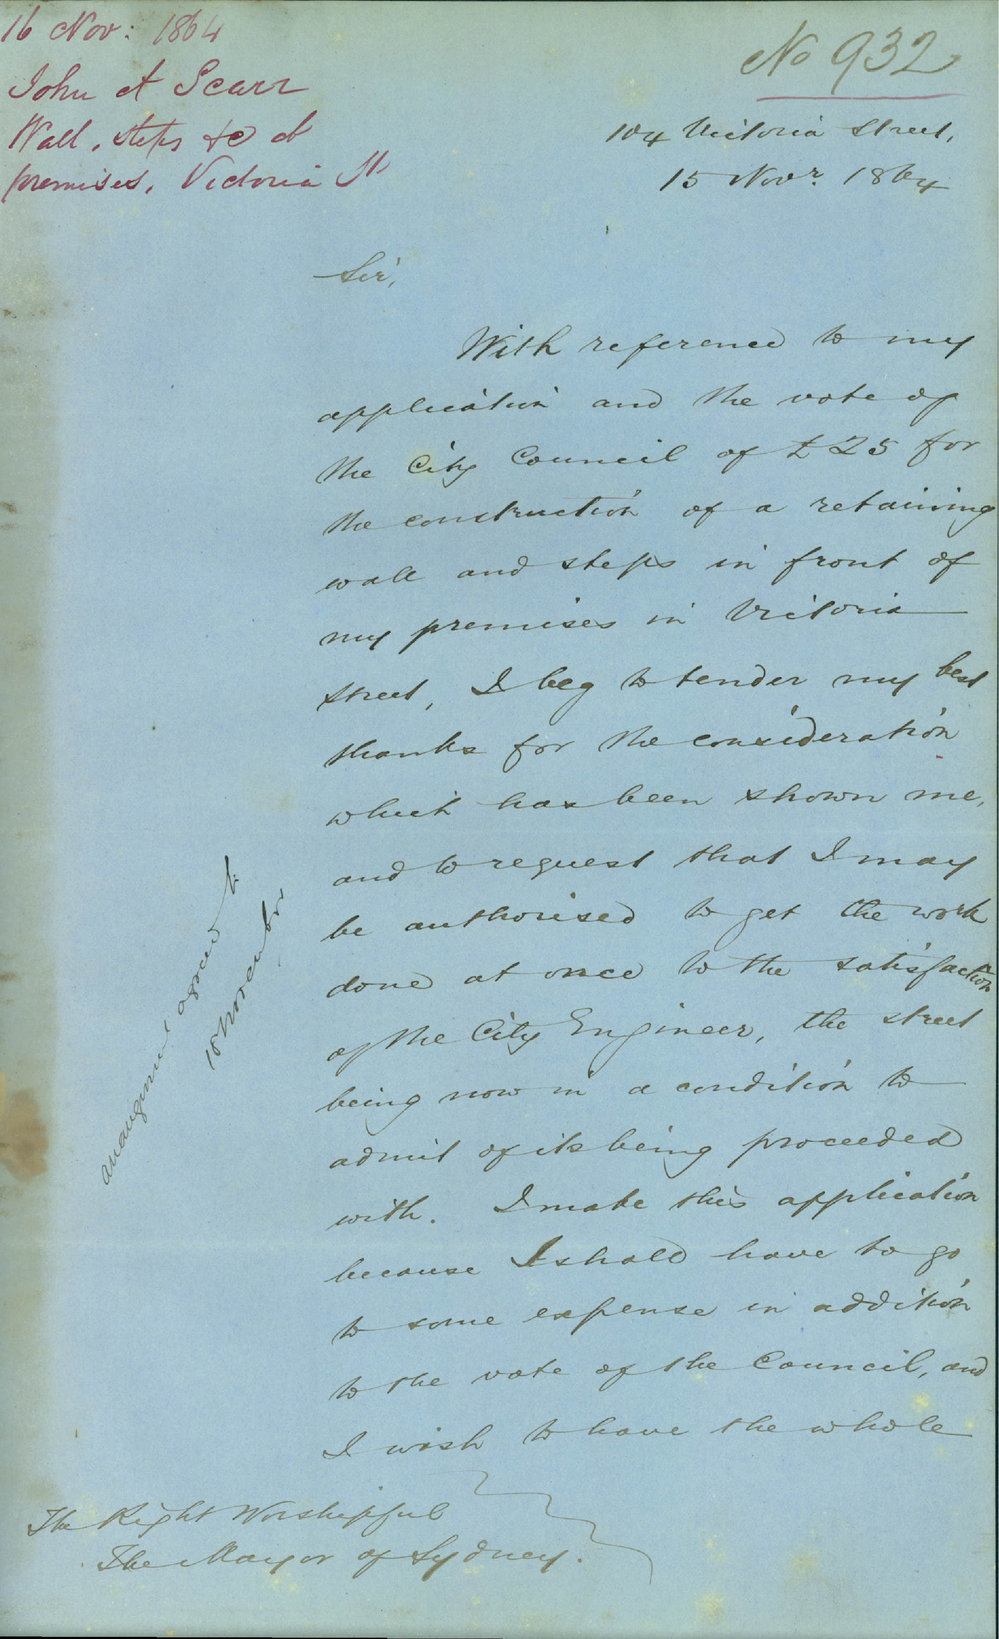 16 Nov: 1864
John A Scarr
Wall, steps &c at
premises, Victoria St
No 932
104 Victoria Street,
15 Novr. 1864
Sir,
With reference to my
application and the vote of
the City Council of £25 for
the construction of a retaining
wall and steps in front of
my premises in Victoria
street, I beg to tender my best
thanks for the consideration
which has been shown me,
and to request that I may
be authorised to get the work
done at once to the satisfaction
of the City Engineer, the street
being now in a condition to
admit of its being proceeded
with. I make this application
because I shall have to go
to some expense in addition
to the vote of the Council, and
I wish to have the whole
The Right Worshipful
The Mayor of Sydney.
arrangement agreed to
18 November